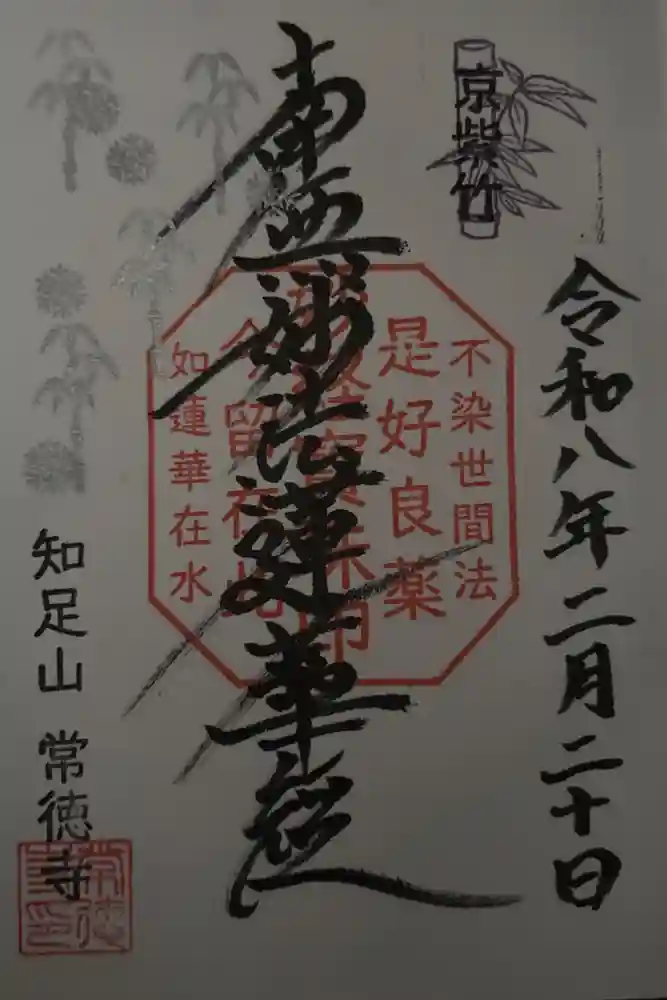 京紫竹
令和八年二月二十日
南無妙法蓮華経
不染世間法
是好良薬
今留在此
如蓮華在水
知足山 常徳寺
常徳寺印